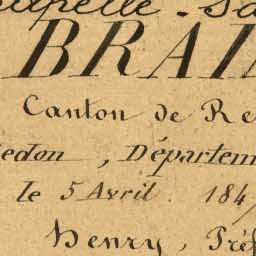 BRAI
Canton de Re
edon, Départem
le 5 Avril. 184
Henry, Préf